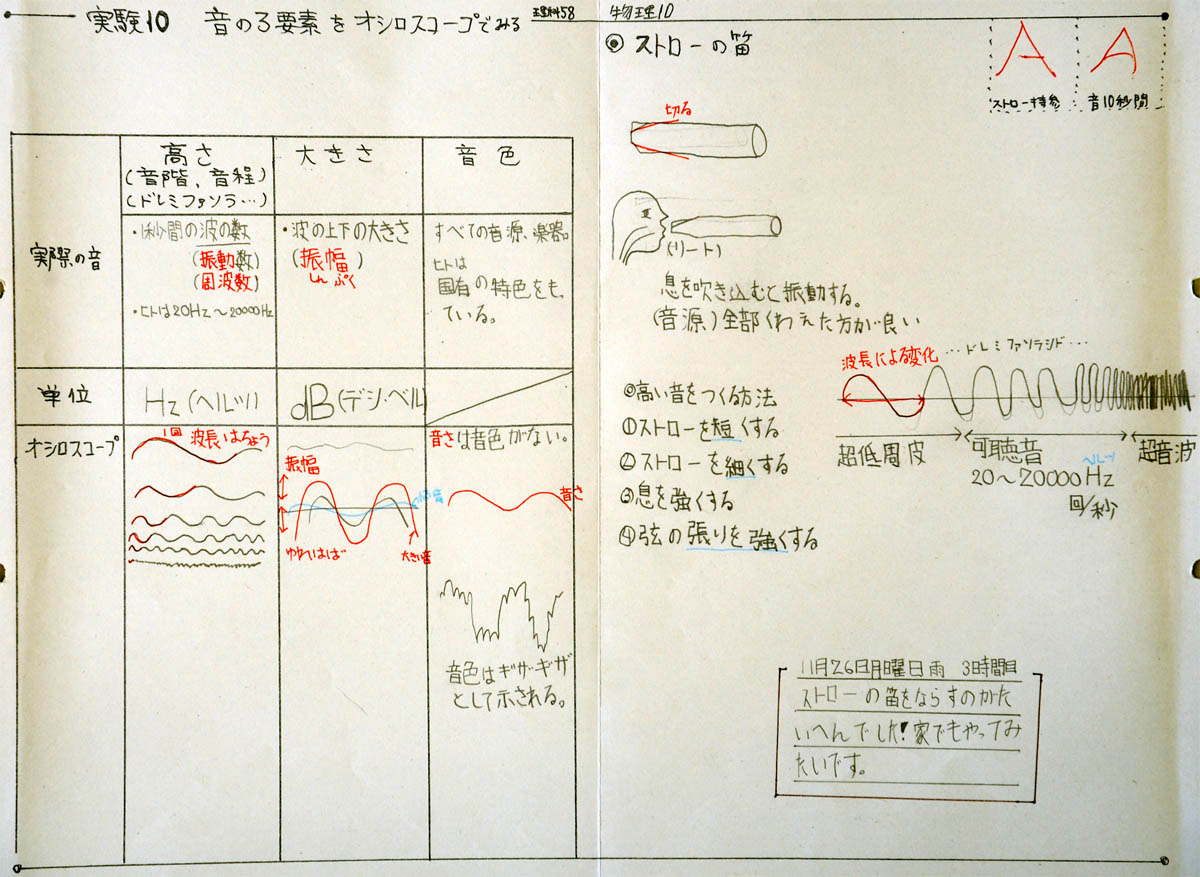 実験10 音の3要素をオシロスコープでみる
理科58
高さ
(音階、音程)
(ドレミファソラ…)
大きさ
音色
実際の音
・1秒間の波の数
(振動数)
(周波数)
・ヒトは20Hz〜20000Hz
・波の上下の大きさ
(振幅)
しんぷく
すべての音源、楽器。
ヒトは
固有の特色をも
ている。
単位
Hz(ヘルツ)
dB(デシ・ベル)
オシロスコープ
1回 波長 はちょう
振幅
ゆれはば
小さい音
大きい音
音さは音色がない。
音さ
音色はギザ・ギザ
として示される。
物理10
◎ストローの笛
A
A
ストロー持参
音10秒間
切る
(リート)
息を吹き込むと振動する。
(音源)全部くわえた方が良い
◎高い音をつくる方法
①ストローを短くする
②ストローを細くする
③息を強くする
④弦の張りを強くする
波長による変化
…ドレミファソラシド…
超低周波
可聴音
超音波
ヘルツ
20〜20000Hz
回/秒
11月26日月曜日雨 3時間目
ストローの笛をならすのがた
いへんでした!家でもやってみ
たいです。